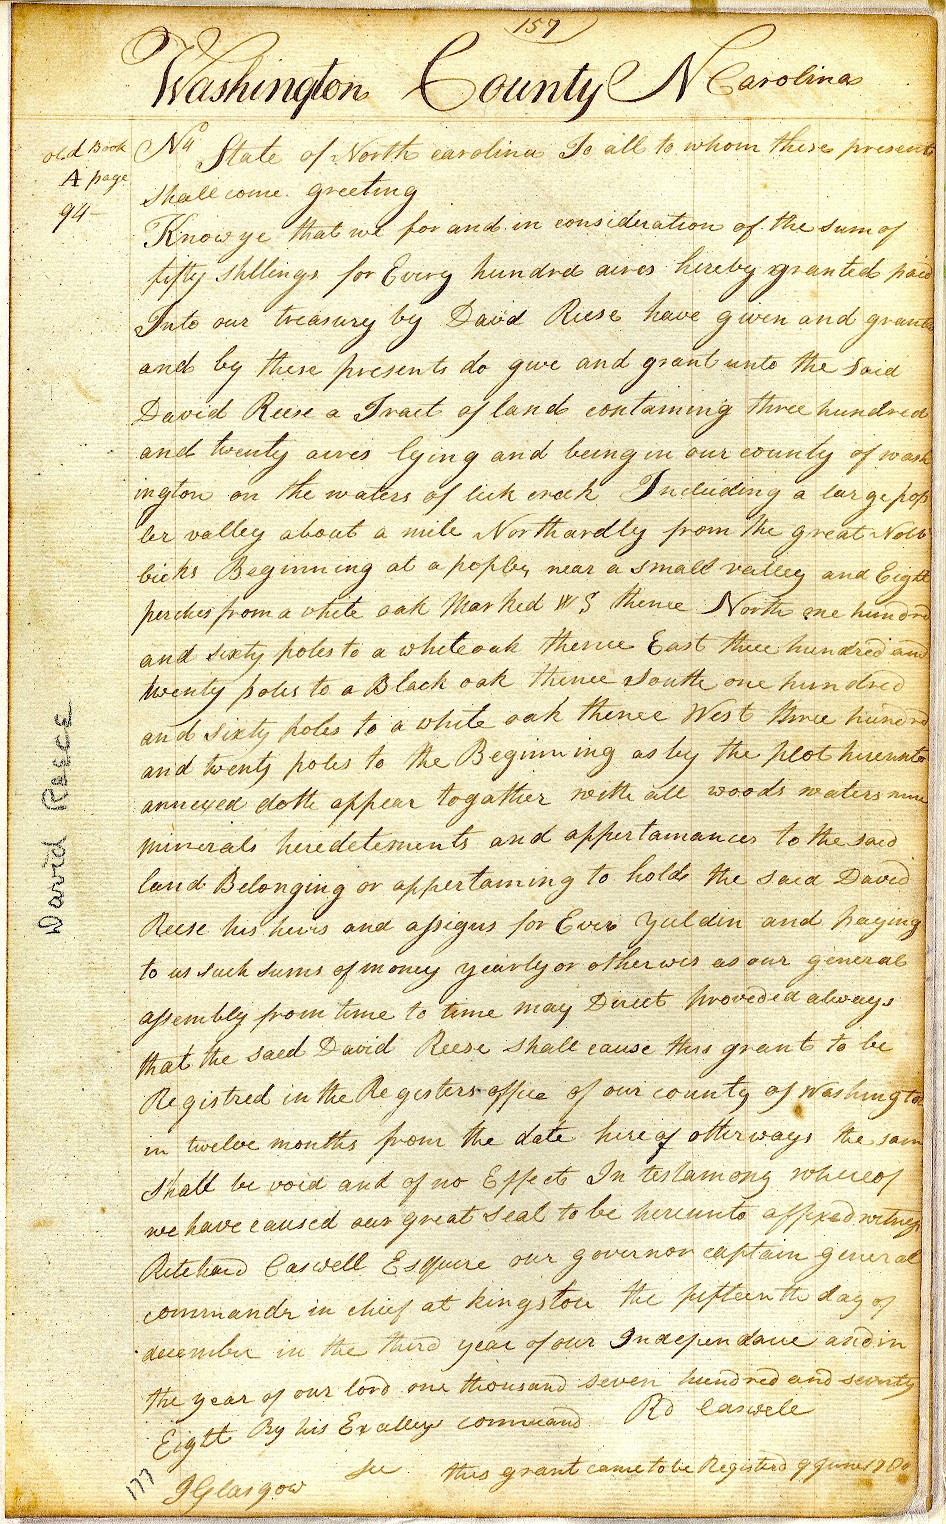 157
Washington County N Carolina
old Book
A page
94
No 4 State of North carolina To all to whom these presents
shall come greeting
Know ye that we for and in consideration of the sum of
fifty shillings for Every hundrd acres hereby granted paid
Into our treasury by David Reese have given and granted
and by these presents do give and grant unto the said
David Reese a Tract of land containing three hundred
and twenty acres lying and being in our county of wash
ington on the waters of lick creek Including a large pop
ler valley about a mile Northardly from the great Nolb
licks Beginning at a popler near a small valley and Eight
perches from a white oak Marked WS thence North one hundrd
and sixty poles to a whiteoak thence East three hundred and
twenty poles to a Black oak thence South one hundred
and sixty poles to a white oak thence West three hundrd
and twenty poles to the Beginning as by the plot hereunto
annexed doth appear togather with all woods waters mines
minerals heredetements and appertainances to the said
land Belonging or appertaining to hold the said David
Reese his heirs and assigns for Ever yuldin and paying
to us such sums of money yearly or otherwis as our general
assembly from time to time may Direct proveded always
that the saed David Reese shall cause this grant to be
Registred in the Registers office of our county of Washington
in twelve months from the date hereof otherways the same
shall be void and of no Effect In testamony whereof
we have caused our great Seal to be hereunto affixed witness
Ritchard Caswell Esquire our governor captain general
commandr in chief at kingston the fifteenth day of
december in the third year of our Independance and in
the year of our lord one thousand seven hundred and seventy
Eight By his Exallys command Rd Caswell
J Glasgow Sec this grant came to be Registerd 9 June 1780
177
David Reece